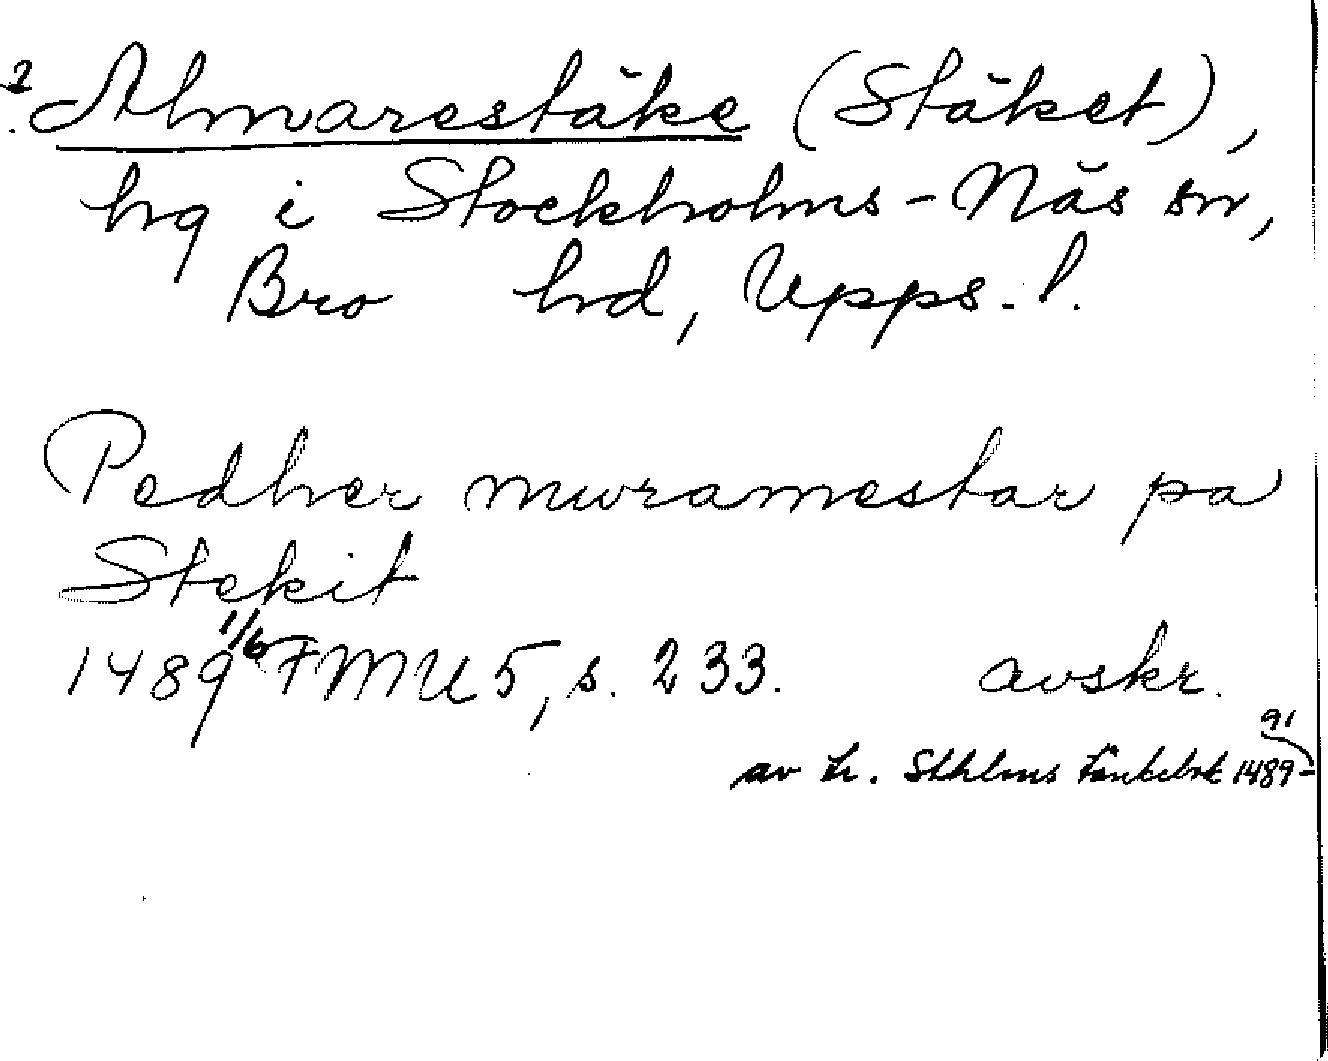 ? Almarestäke (Stäket),
hg i Stockholms-Näs sn,
Bro hd, Upps. l.
Pedher muramestar pa
Stekit
1489 1/6 FMU 5, s. 233. avskr.
av tr. Sthlms tänkebok 1489-91